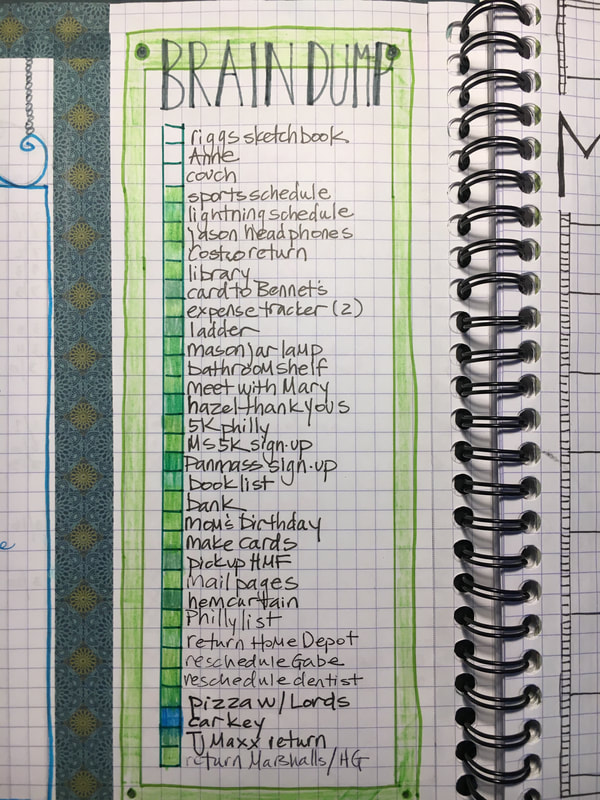 BRAIN DUMP
riggs sketchbook
Anne
couch
sports schedule
lightning schedule
Jason headphones
Costco return
library
card to Bennet's
expense tracker (2)
ladder
mason jar lamp
bathroom shelf
meet with Mary
hazel thank yous
5K philly
MS 5K sign-up
Panmass sign-up
book list
bank
mom's birthday
make cards
pickup HMF
Mail pages
hem curtain
Philly list
return Home Depot
reschedule Gabe
reschedule dentist
pizza w/ Lords
car key
TJ Maxx return
return Marshalls/HG
M
e